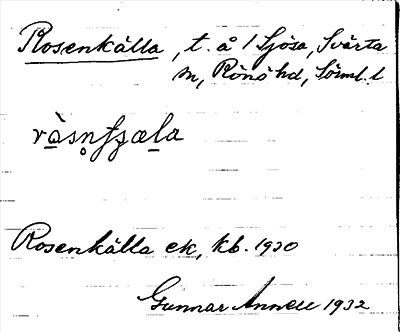 Rosenkälla, t. å 1 Sjösa, Svärta
sn, Rönö hd, Sörml. l
ròsn̥fʒæla
Rosenkälla ek, kb. 1930
Gunnar Annell 1932